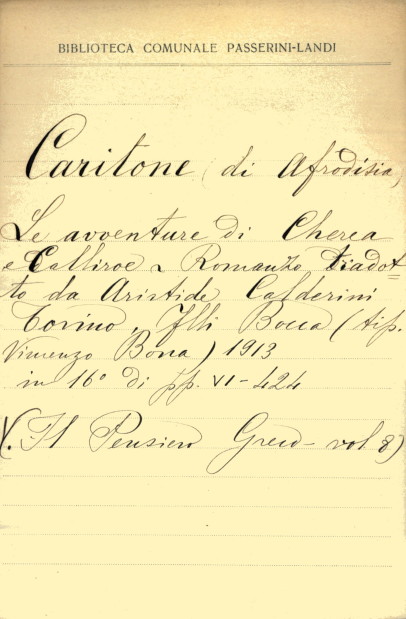 BIBLIOTECA COMUNALE PASSERINI-LANDI
Caritone (di Afrodisia)
Le avventure di Cherea
e Calliroe ~ Romanzo tradot=
to da Aristide Calderini
Torino, Flli Bocca (tip.
Vincenzo Bona) 1913
in 16° di pp. VI-424
(V. Il Pensiero Greco - vol. 8)